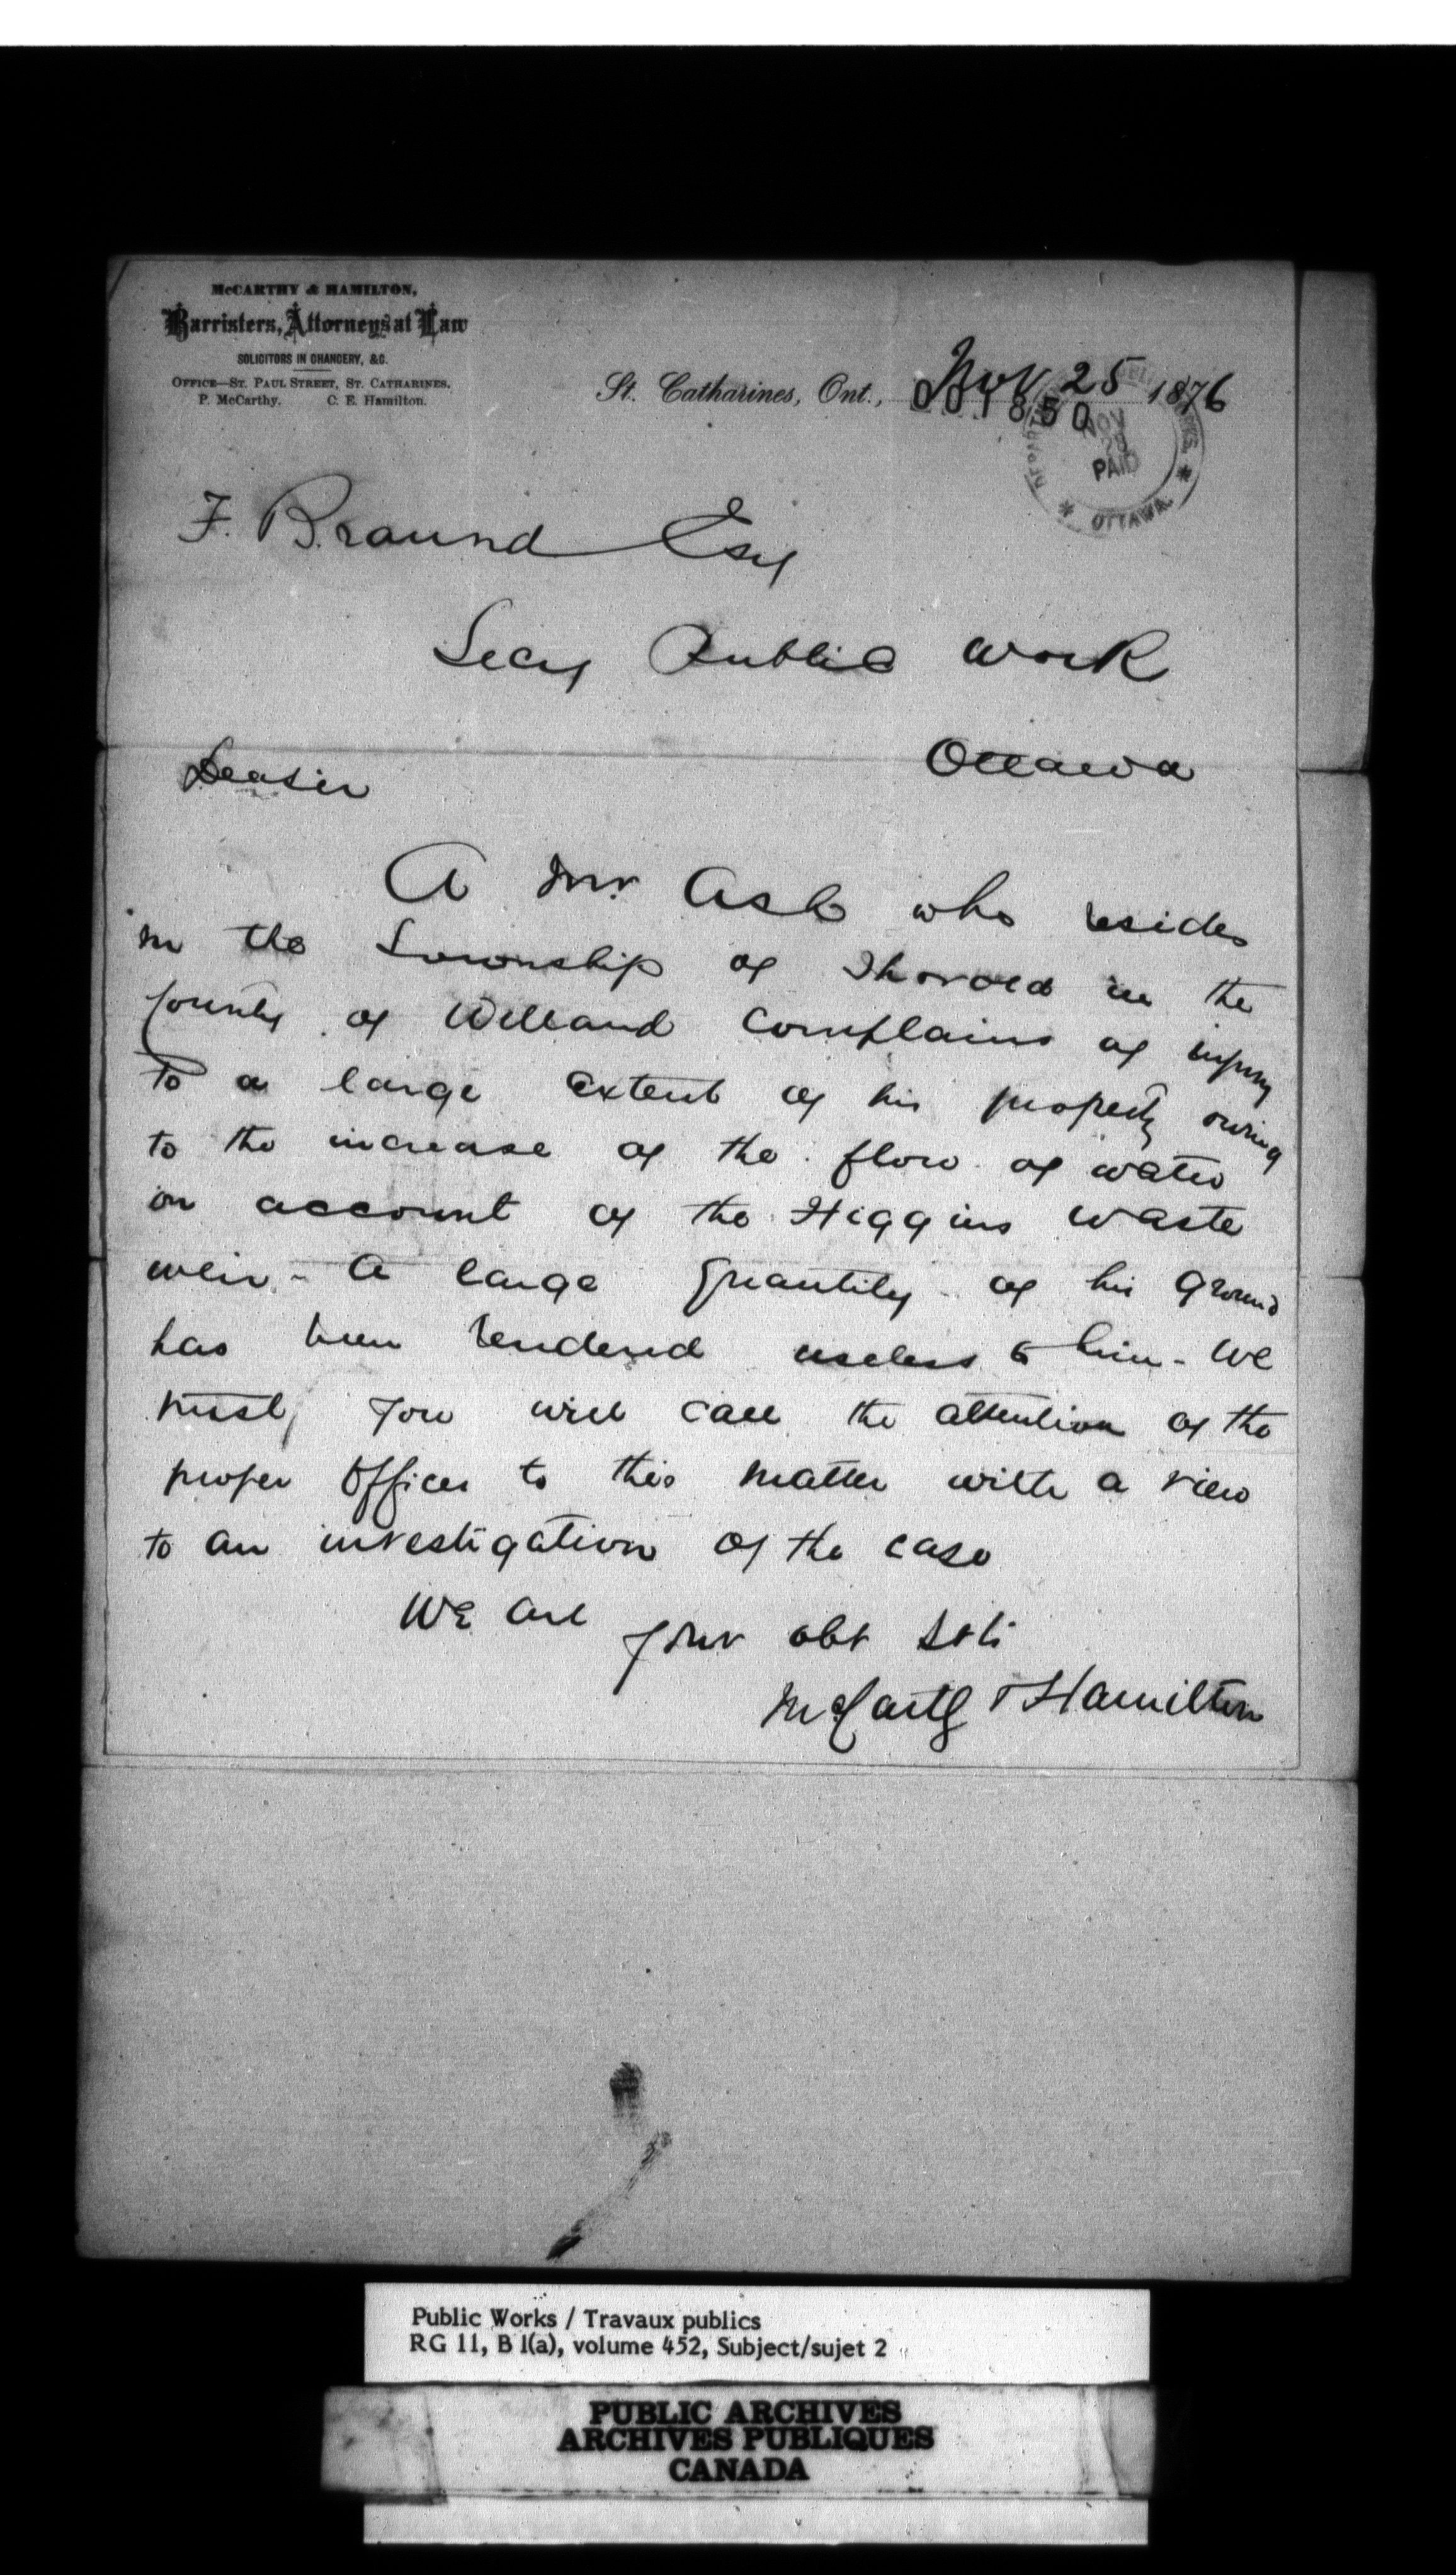 McCARTHY & HAMILTON,
Barristers, Attorneys at Law
SOLICITORS IN CHANCERY, &C.
OFFICE—ST. PAUL STREET, ST. CATHARINES.
P. McCarthy. C. E. Hamilton.
St. Catharines, Ont., Nov 25 1876
001850
NOV
28
PAID
OTTAWA
F. Braund Esq
Secy Public Work
Ottawa
Dear Sir
A Mr. Ash who resides
in the Township of Thorold in the
County of Welland complains of injury
to a large extent of his property owing
to the increase of the flow of water
on account of the Higgins waste
weir - A large quantity of his ground
has been rendered useless to him - We
trust you will call the attention of the
proper officer to this matter with a view
to an investigation of the case
We are
your obt Svts
McCarthy & Hamilton
Public Works / Travaux publics
RG 11, B 1(a), volume 452, Subject/sujet 2
PUBLIC ARCHIVES
ARCHIVES PUBLIQUES
CANADA